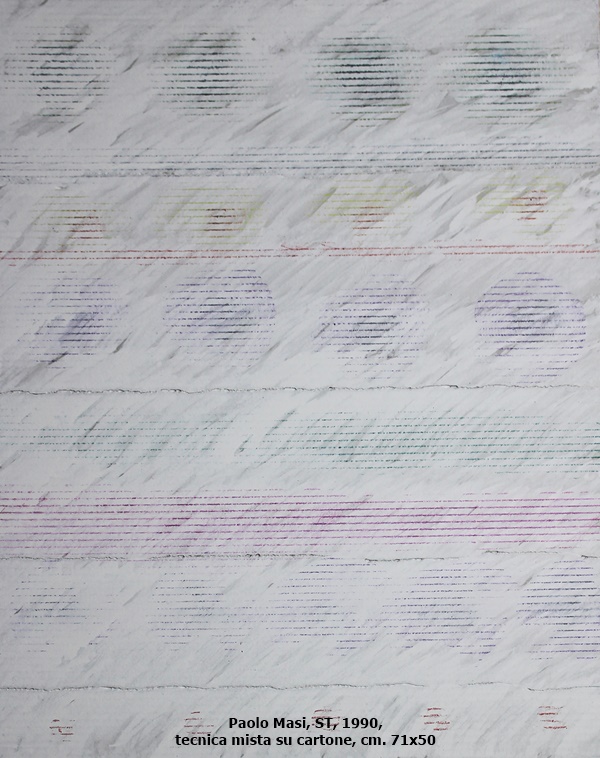 Paolo Masi, ST, 1990,
tecnica mista su cartone, cm. 71x50